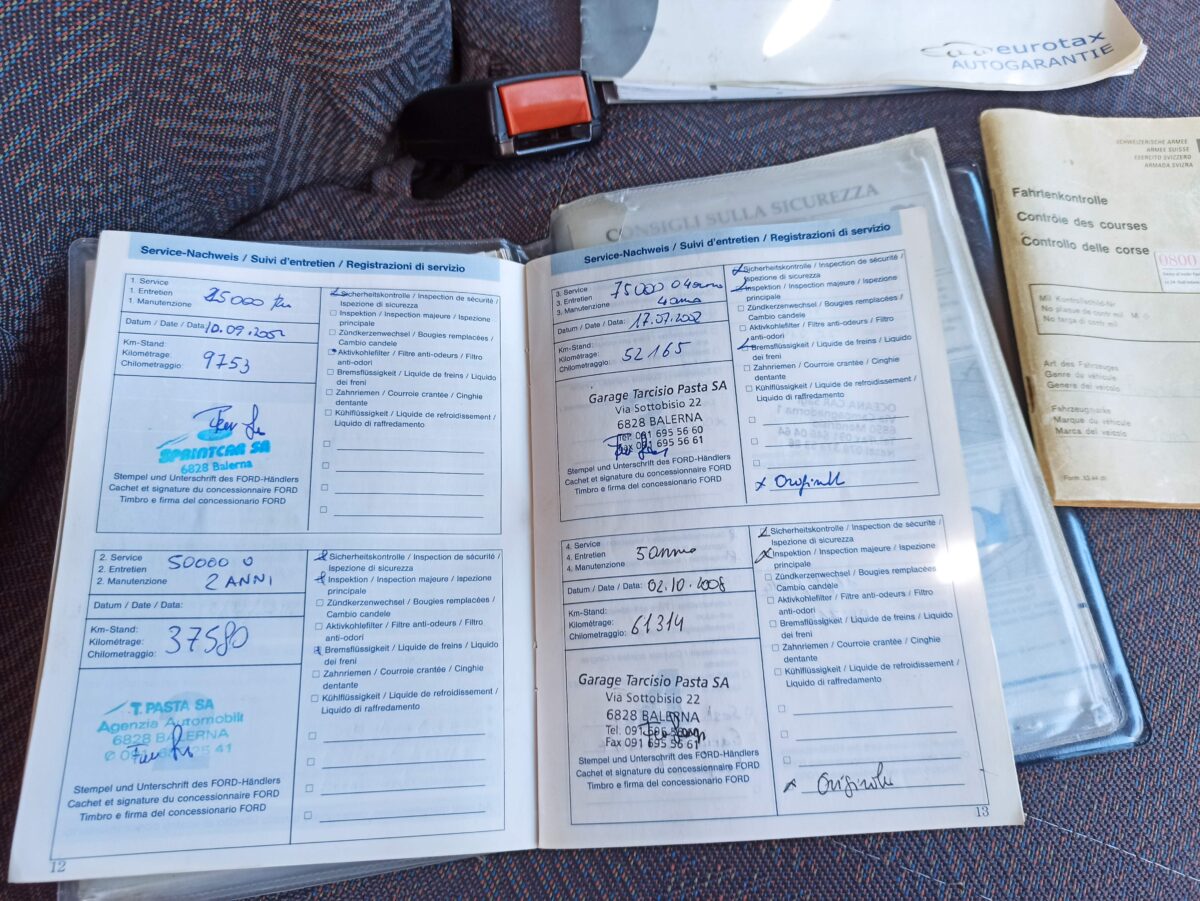 eurotax
AUTOGARANTIE
SCHWEIZERISCHE ARMEE
ARMEE SUISSE
ESERCITO SVIZZERO
ARMADA SVIZRA
Fahrtenkontrolle
Contrôle des courses
Controllo delle corse
0800
Mil Kontrollschild-Nr
No plaque de contr mil M
No targa di contr mil
Art des Fahrzeuges
Genre du véhicule
Genere del veicolo
Fahrzeugmarke
Marque du véhicule
Marca del veicolo
CONSIGLI SULLA SICUREZZA
Service-Nachweis / Suivi d'entretien / Registrazioni di servizio
1. Service
1. Entretien
1. Manutenzione
15000 km
Datum / Date / Data:
Km-Stand:
Kilométrage:
Chilometraggio:
9753
SPRINTCAR SA
6828 Balerna
Stempel und Unterschrift des FORD-Händlers
Cachet et signature du concessionnaire FORD
Timbro e firma del concessionario FORD
Sicherheitskontrolle / Inspection de sécurité /
Ispezione di sicurezza
Inspektion / Inspection majeure / Ispezione
principale
Zündkerzenwechsel / Bougies remplacées /
Cambio candele
Aktivkohlefilter / Filtre anti-odeurs / Filtro
anti-odori
Bremsflüssigkeit / Liquide de freins / Liquido
dei freni
Zahnriemen / Courroie crantée / Cinghia
dentante
Kühlflüssigkeit / Liquide de refroidissement /
Liquido di raffredamento
2. Service
2. Entretien
2. Manutenzione
50000 O
2 ANNI
Datum / Date / Data:
Km-Stand:
Kilométrage:
Chilometraggio:
37580
T. PASTA SA
Agenzia Automobili
6828 BALERNA
Stempel und Unterschrift des FORD-Händlers
Cachet et signature du concessionnaire FORD
Timbro e firma del concessionario FORD
Sicherheitskontrolle / Inspection de sécurité /
Ispezione di sicurezza
Inspektion / Inspection majeure / Ispezione
principale
Zündkerzenwechsel / Bougies remplacées /
Cambio candele
Aktivkohlefilter / Filtre anti-odeurs / Filtro
anti-odori
Bremsflüssigkeit / Liquide de freins / Liquido
dei freni
Zahnriemen / Courroie crantée / Cinghia
dentante
Kühlflüssigkeit / Liquide de refroidissement /
Liquido di raffredamento
12
Service-Nachweis / Suivi d'entretien / Registrazioni di servizio
3. Service
3. Entretien
3. Manutenzione
75000 O
Datum / Date / Data:
Km-Stand:
Kilométrage:
Chilometraggio:
52165
Garage Tarcisio Pasta SA
Via Sottobisio 22
6828 BALERNA
Tel. 091 695 56 60
Fax 091 695 56 61
Stempel und Unterschrift des FORD-Händlers
Cachet et signature du concessionnaire FORD
Timbro e firma del concessionario FORD
Sicherheitskontrolle / Inspection de sécurité /
Ispezione di sicurezza
Inspektion / Inspection majeure / Ispezione
principale
Zündkerzenwechsel / Bougies remplacées /
Cambio candele
Aktivkohlefilter / Filtre anti-odeurs / Filtro
anti-odori
Bremsflüssigkeit / Liquide de freins / Liquido
dei freni
Zahnriemen / Courroie crantée / Cinghia
dentante
Kühlflüssigkeit / Liquide de refroidissement /
Liquido di raffredamento
4. Service
4. Entretien
4. Manutenzione
5 anno
Datum / Date / Data: 02.10.2008
Km-Stand:
Kilométrage:
Chilometraggio:
61314
Garage Tarcisio Pasta SA
Via Sottobisio 22
6828 BALERNA
Tel. 091
Fax 091 695 56 61
Stempel und Unterschrift des FORD-Händlers
Cachet et signature du concessionnaire FORD
Timbro e firma del concessionario FORD
Sicherheitskontrolle / Inspection de sécurité /
Ispezione di sicurezza
Inspektion / Inspection majeure / Ispezione
principale
Zündkerzenwechsel / Bougies remplacées /
Cambio candele
Aktivkohlefilter / Filtre anti-odeurs / Filtro
anti-odori
Bremsflüssigkeit / Liquide de freins / Liquido
dei freni
Zahnriemen / Courroie crantée / Cinghia
dentante
Kühlflüssigkeit / Liquide de refroidissement /
Liquido di raffredamento
13